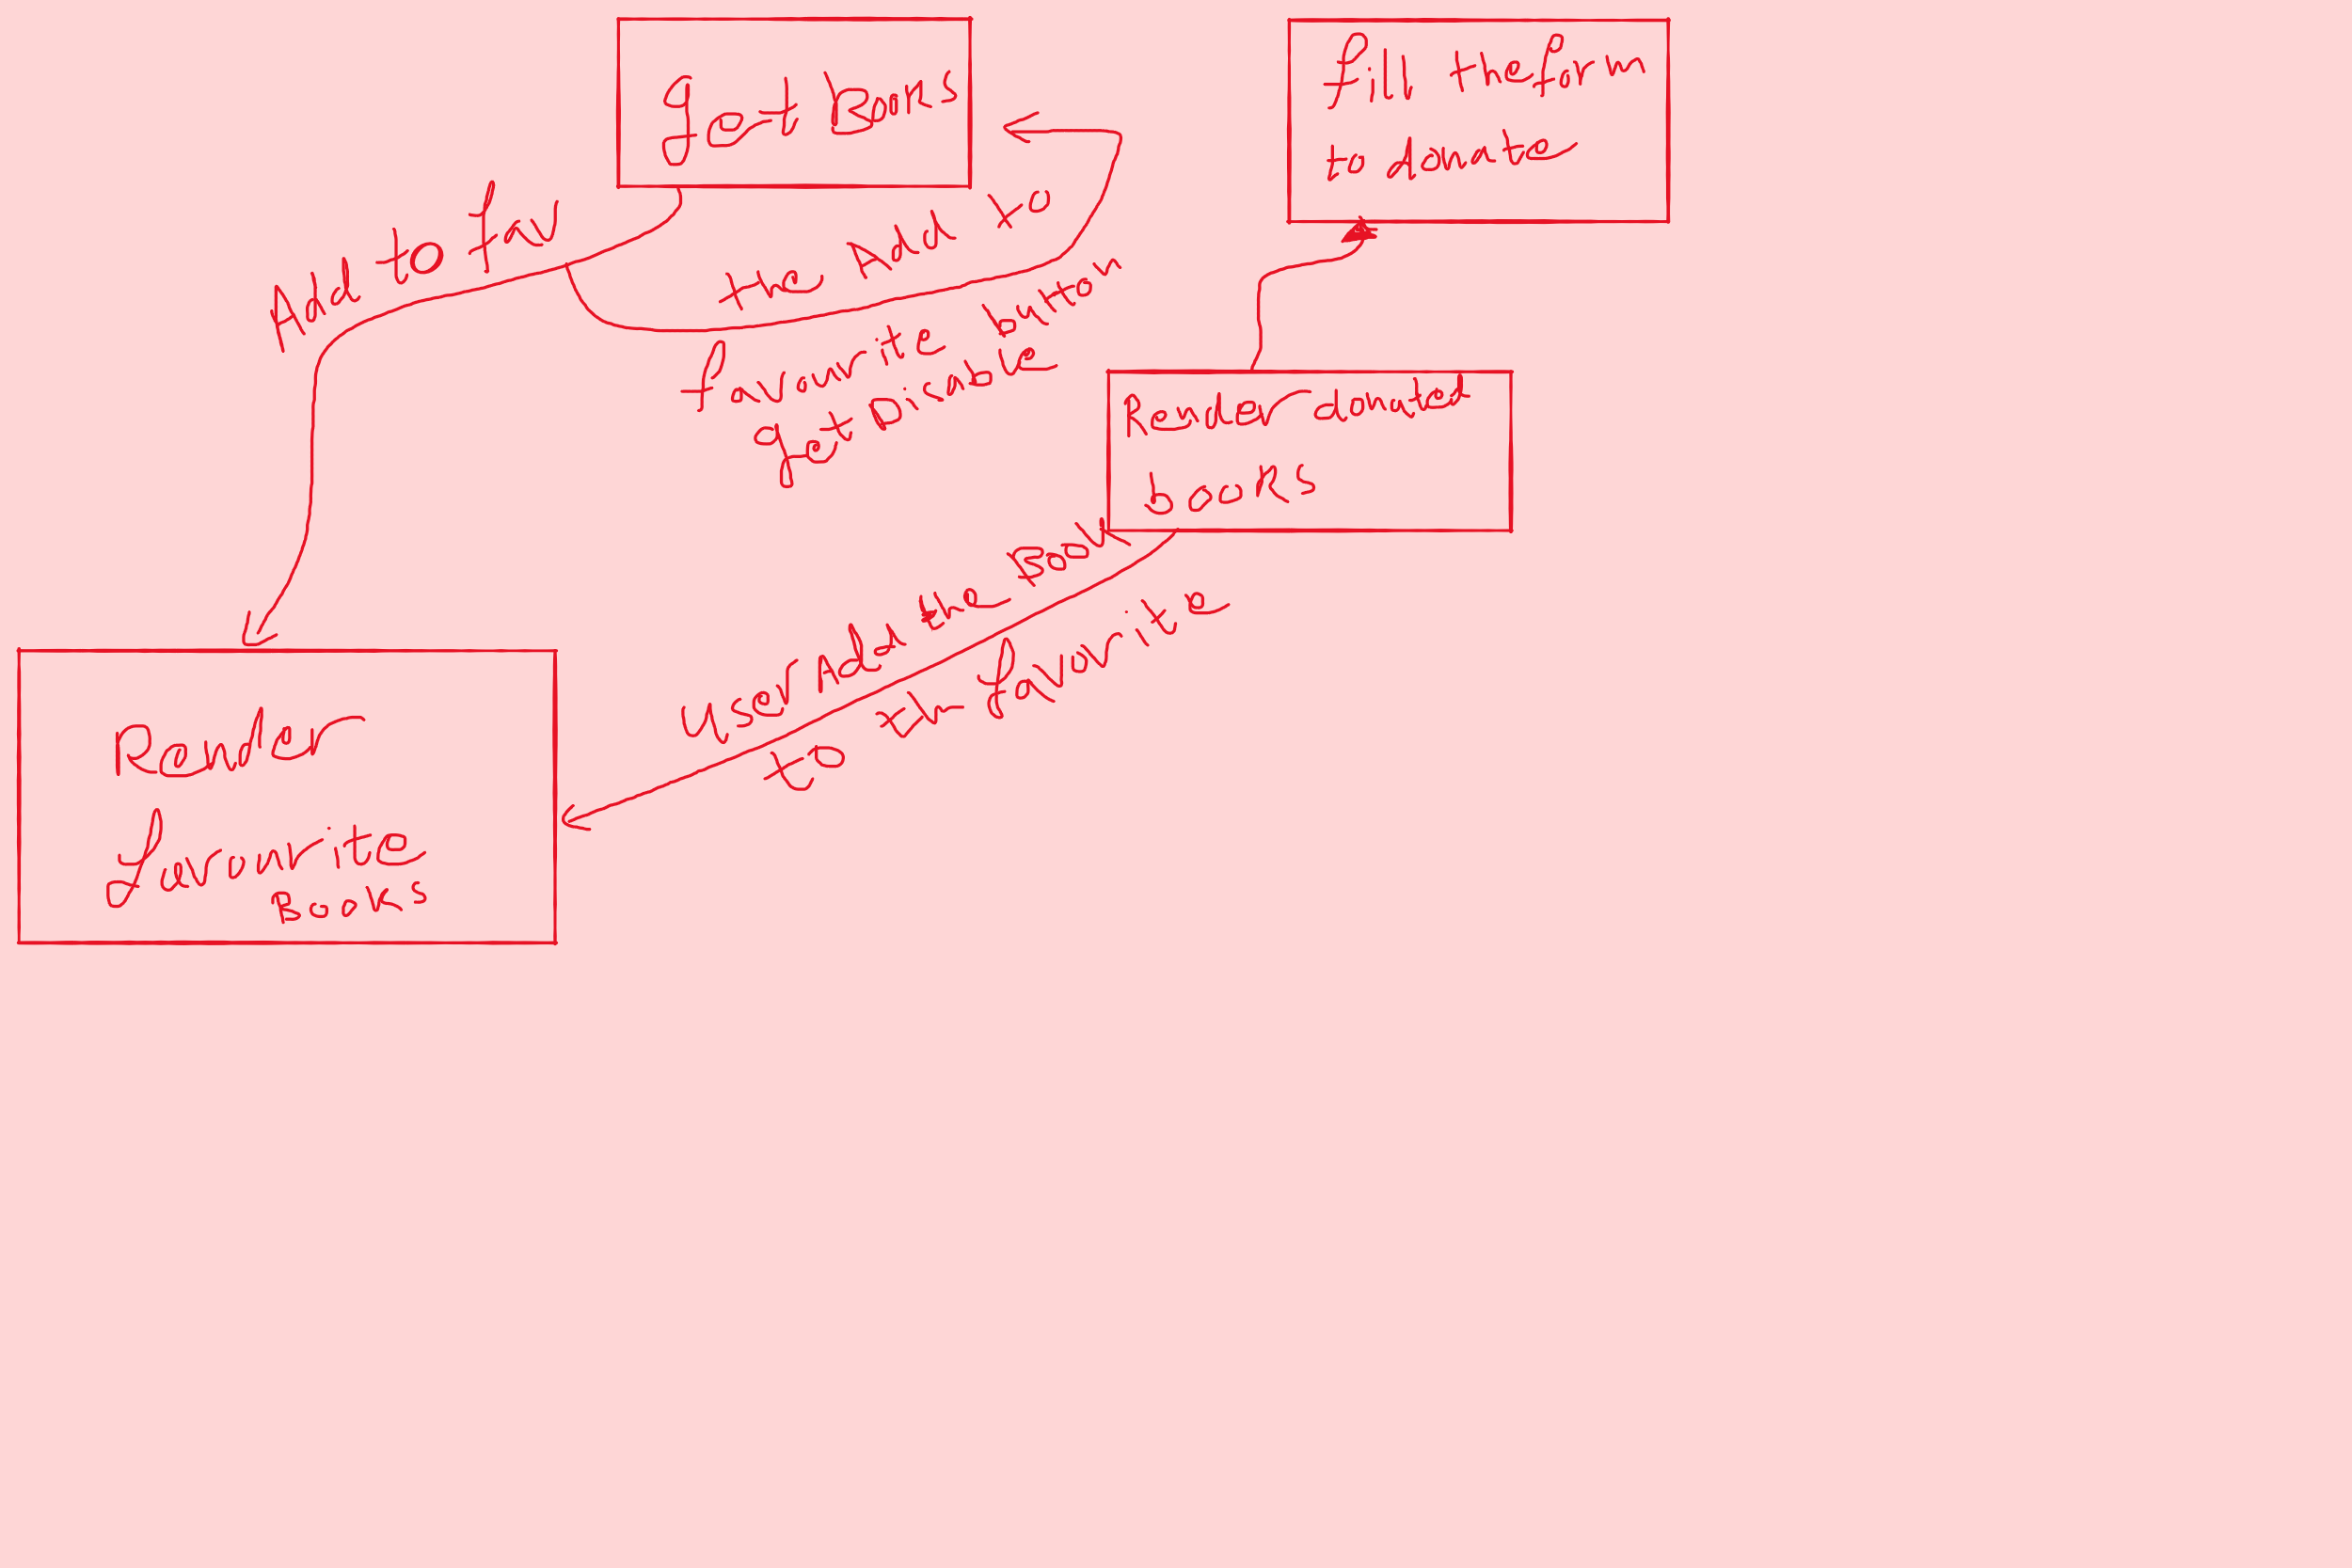 Get Books
fill the form
to donate
Add to fav
the Add to
favourite button
get Disable
Render donated
books
User Add the Book
to th favorite
Render
favourite
Books